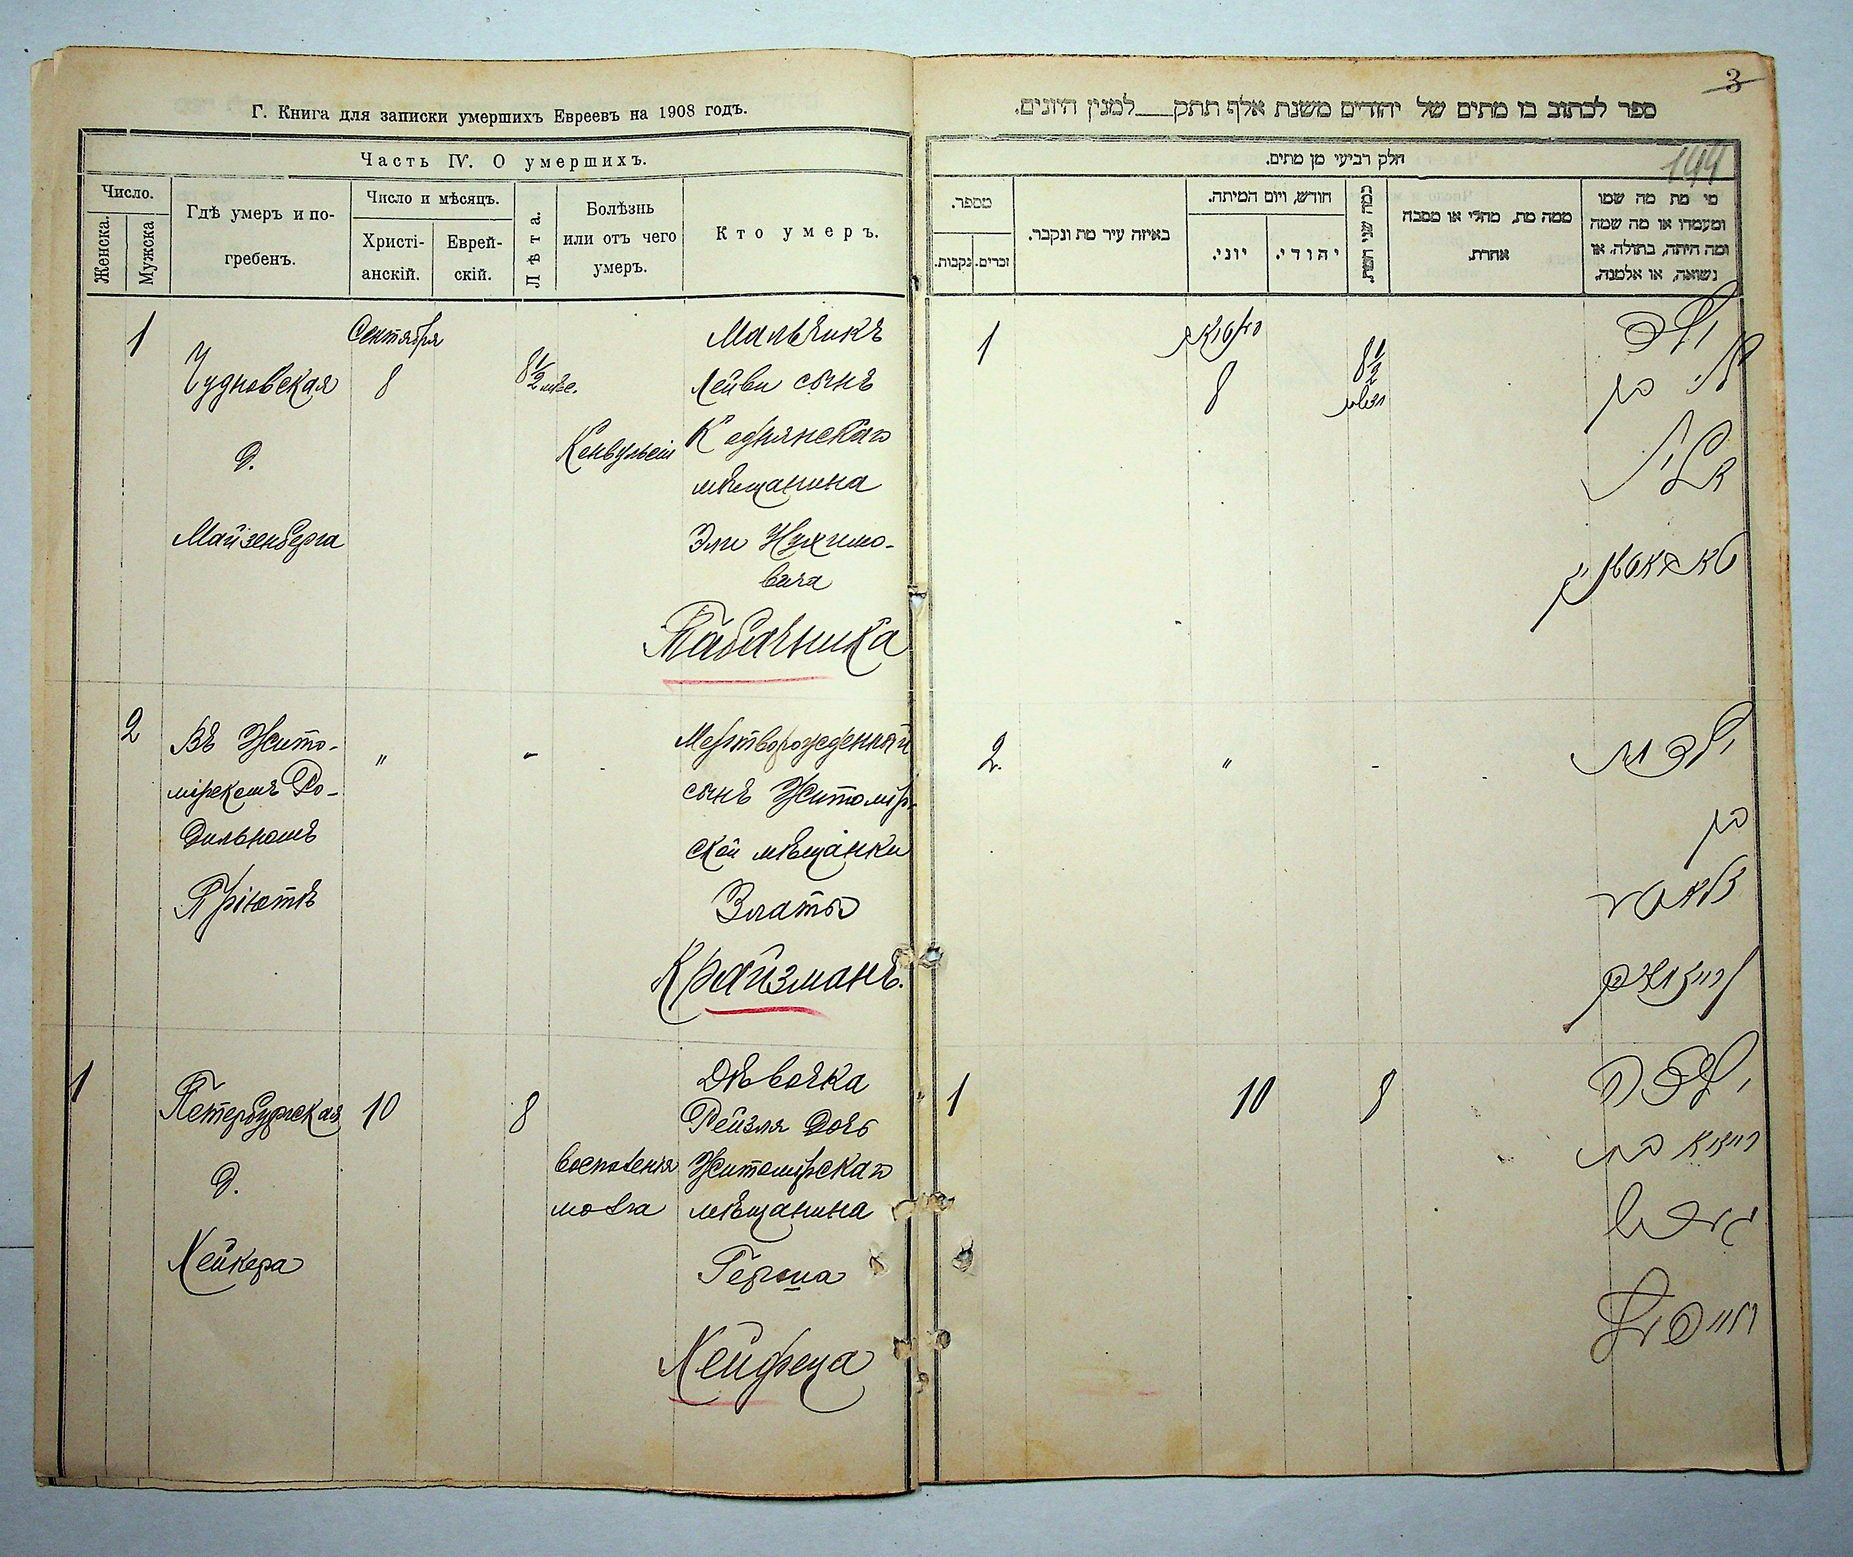 Г. Книга для записки умершихъ Евреевъ на 1908 годъ.
Часть IV. О умершихъ.
Число.
Женска.
Мужска
Гдѣ умеръ и по-
гребенъ.
Число и мѣсяцъ.
Христі-
анскій.
Еврей-
скій.
Лѣта.
Болѣзнь
или отъ чего
умеръ.
Кто умеръ.
1
Чудновская
д.
Майзенберга
Сентября
8
8 1/2 мѣс.
Мальчикъ
Лейви сынъ
мѣщанина
Эли Нухимо-
вича
Табачника
2
Въ Жито-
мірскомъ Ро-
дильномъ
Пріютѣ
"
-
Мертворожденный
сынъ Житомір-
ской мѣщанки
Златы
Крайзманъ.
1
Петербургская
д.
Хейкера
10
8
воспаленія
мозга
Дѣвочка
Рейзля дочь
Житомірскаго
мѣщанина
Герша
Хейфеца
3
144
ספר לכתוב בו מתים של יהודים משנת אלף תתק___למנין היונים.
חלק רביעי מן מתים.
מספר.
נקבות.
זכרים.
באיזה עיר מת ונקבר.
חודש, ויום המיתה.
יוני.
יהודי.
כמה שני המת.
ממה מת, מחלי או מסבה
אחרת.
מי מת מה שמו
ומעמדו או מה שמה
ומה היתה, בתולה, או
נשואה, או אלמנה.
1
8
8 1/2
ילד
לוי בן
2.
"
-
ילד מת
בן
זלאטע
קרייזמאן
1
10
8
ילדה
רייזא בת
הירש
חייפעץ